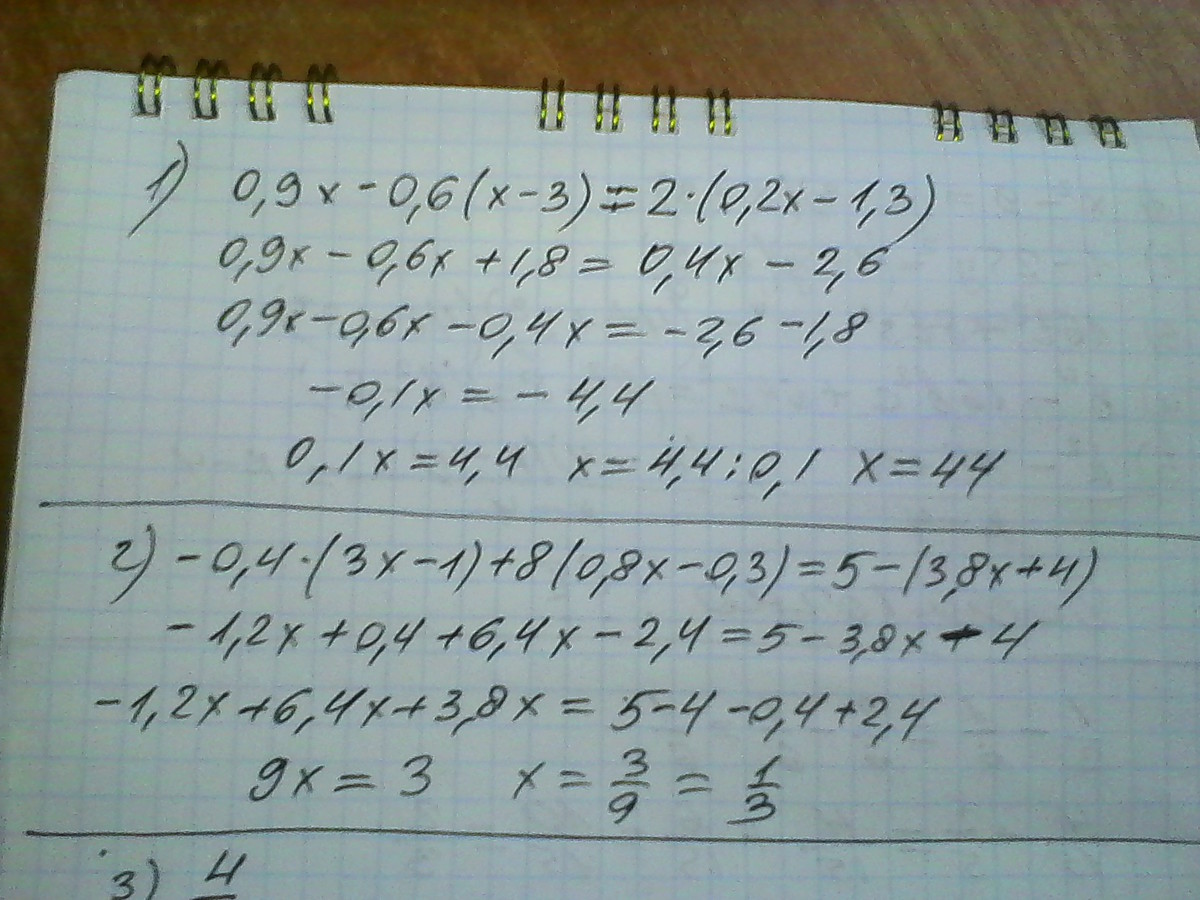 1) 0,9x - 0,6(x-3) = 2·(0,2x - 1,3)
0,9x - 0,6x + 1,8 = 0,4x - 2,6
0,9x - 0,6x - 0,4x = -2,6 - 1,8
-0,1x = -4,4
0,1x = 4,4 x = 4,4:0,1 x = 44
2) -0,4·(3x-1)+8(0,8x-0,3)=5-(3,8x+4)
-1,2x+0,4+6,4x-2,4=5-3,8x-4
-1,2x+6,4x+3,8x = 5-4-0,4+2,4
9x = 3 x = 3/9 = 1/3
3) 4